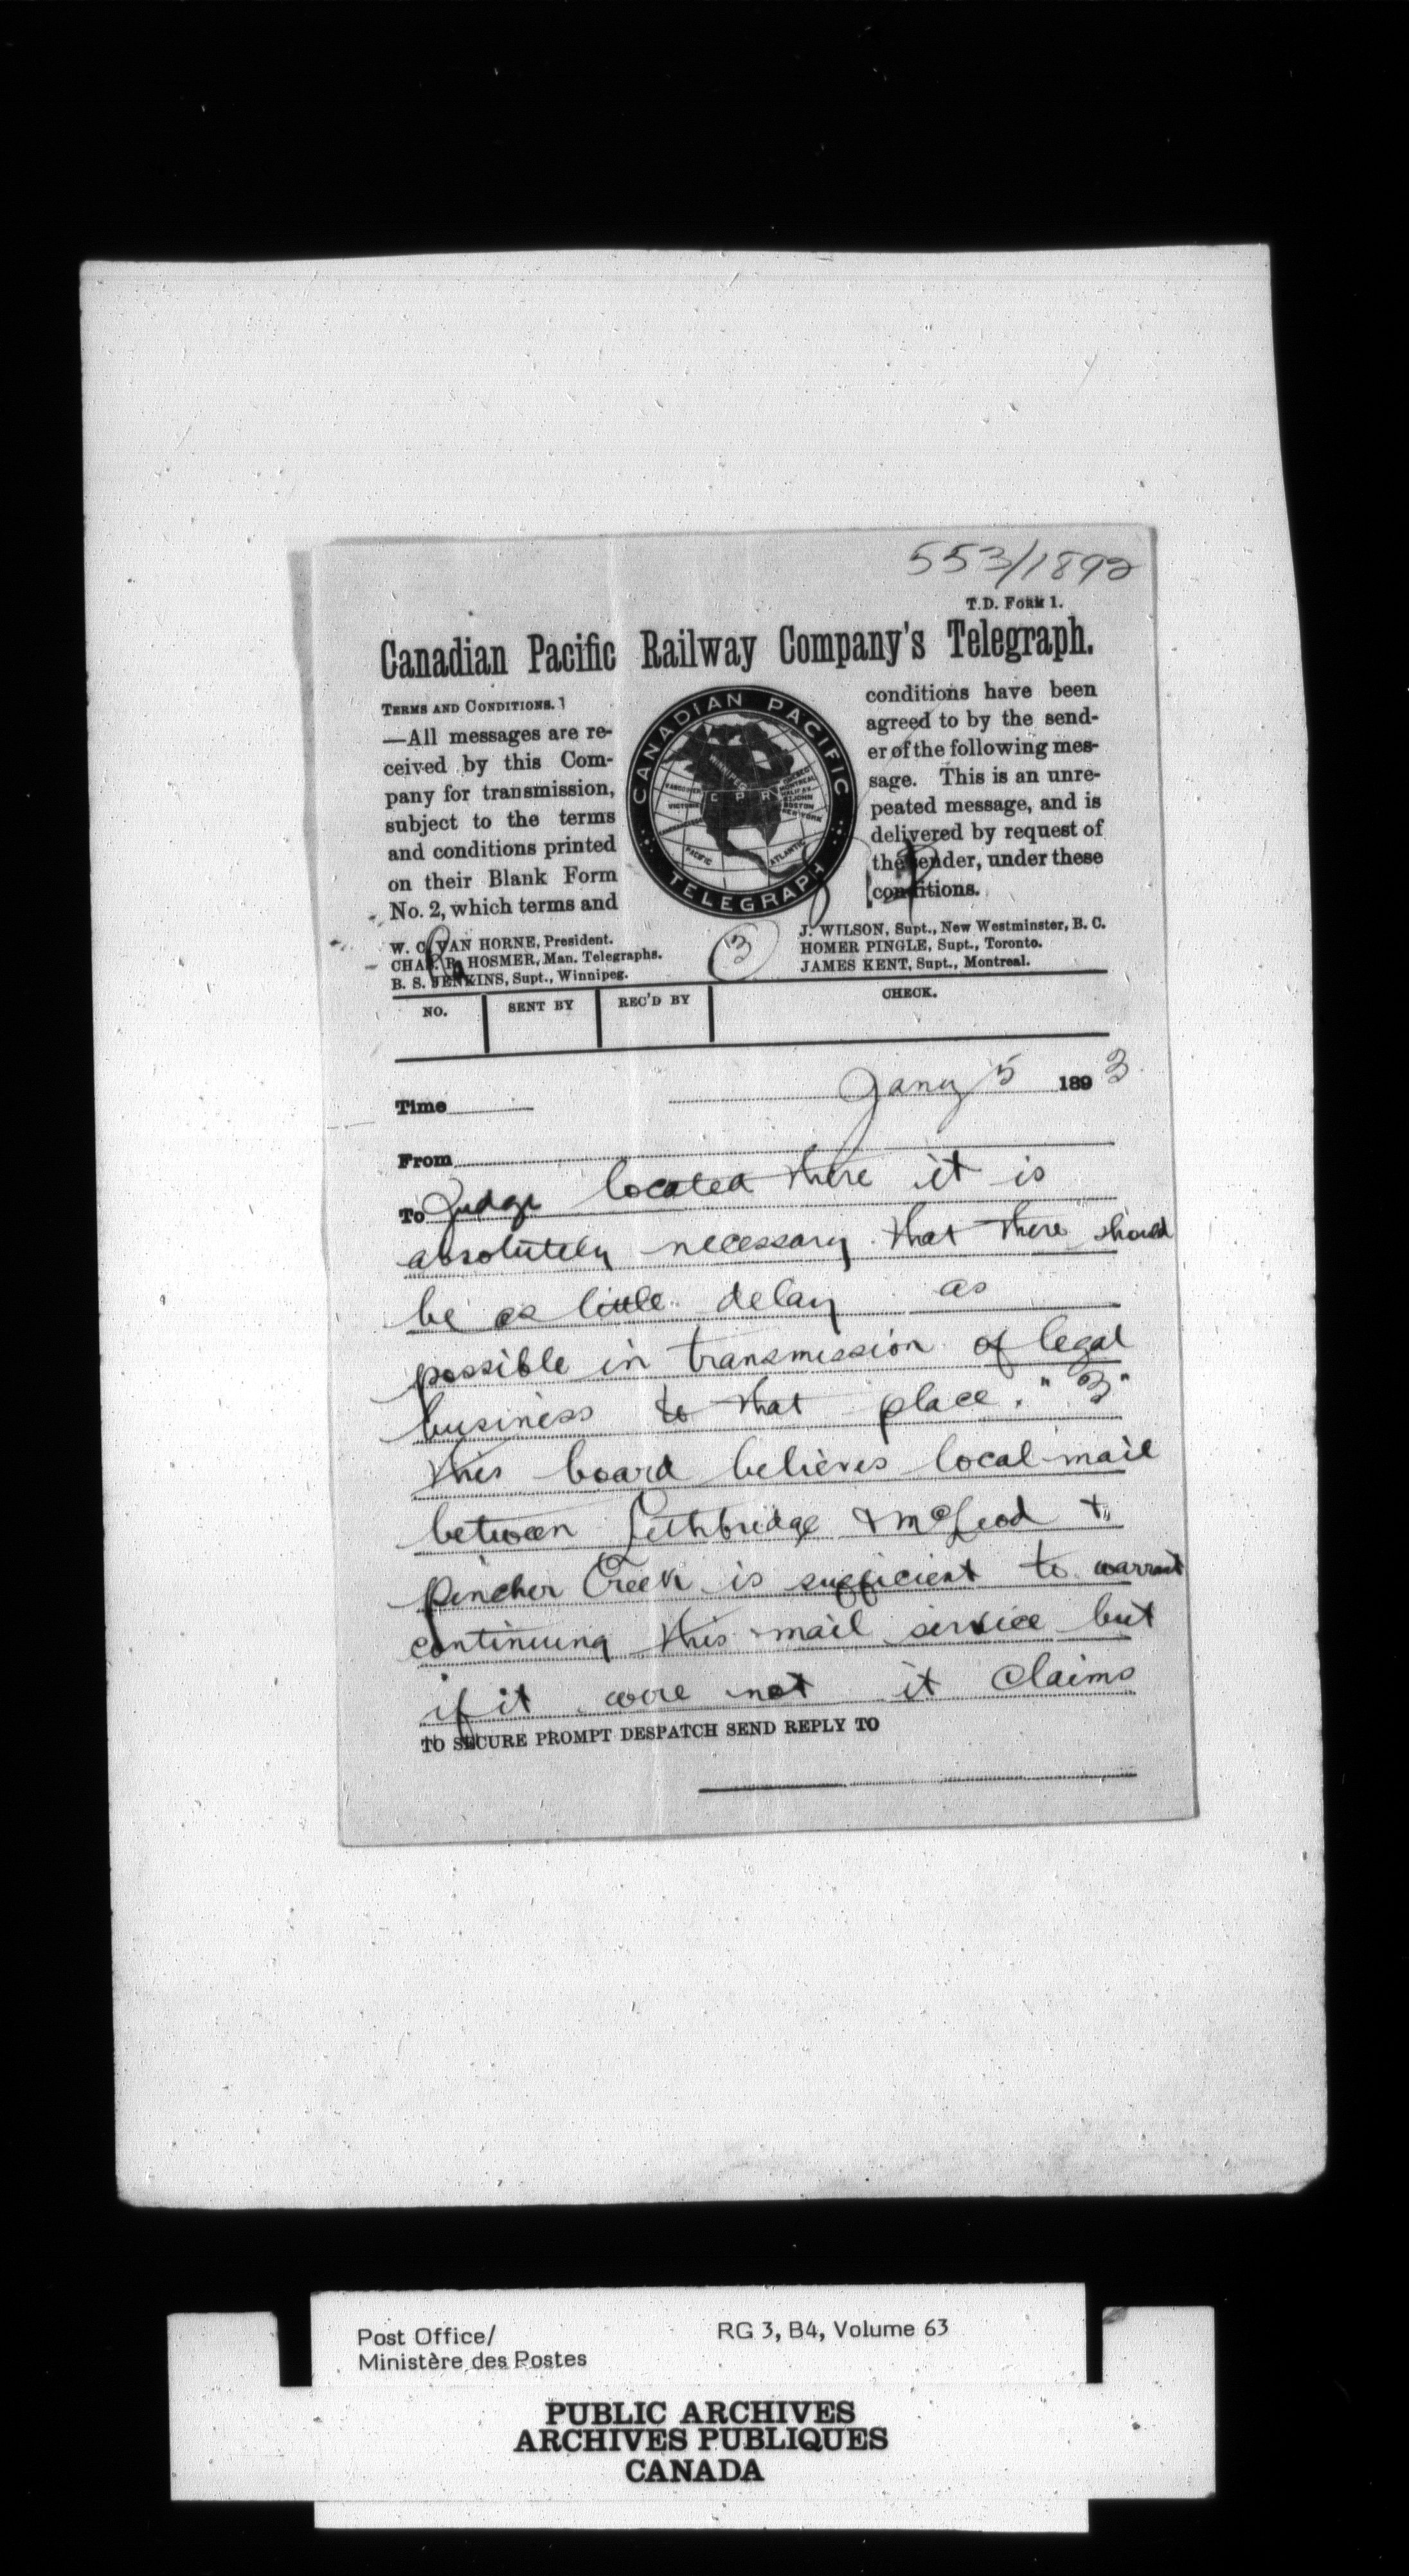 553/1892
T.D. Form 1.
Canadian Pacific Railway Company's Telegraph.
TERMS AND CONDITIONS.
—All messages are re-
ceived by this Com-
pany for transmission,
subject to the terms
and conditions printed
on their Blank Form
No. 2, which terms and
CANADIAN PACIFIC
TELEGRAPH
WINNIPEG
VANCOUVER
VICTORIA
C P R
QUEBEC
MONTREAL
HALIFAX
ST JOHN
BOSTON
NEW YORK
PACIFIC
ATLANTIC
conditions have been
agreed to by the send-
er of the following mes-
sage. This is an unre-
peated message, and is
delivered by request of
the sender, under these
conditions.
W. C. VAN HORNE, President.
CHAS. R. HOSMER, Man. Telegraphs.
B. S. JENKINS, Supt., Winnipeg.
3
J. WILSON, Supt., New Westminster, B. C.
HOMER PINGLE, Supt., Toronto.
JAMES KENT, Supt., Montreal.
NO. SENT BY REC'D BY CHECK.
Time Jany 5 1893
From
To Judge located there it is
absolutely necessary that there should
be as little delay as
possible in transmission of legal
business to that place. "3"
This board believes local mail
between Lethbridge & McLeod &
Pincher Creek is sufficient to warrant
continuing this mail service but
if it were not it claims
TO SECURE PROMPT DESPATCH SEND REPLY TO
Post Office/
Ministère des Postes
RG 3, B4, Volume 63
PUBLIC ARCHIVES
ARCHIVES PUBLIQUES
CANADA